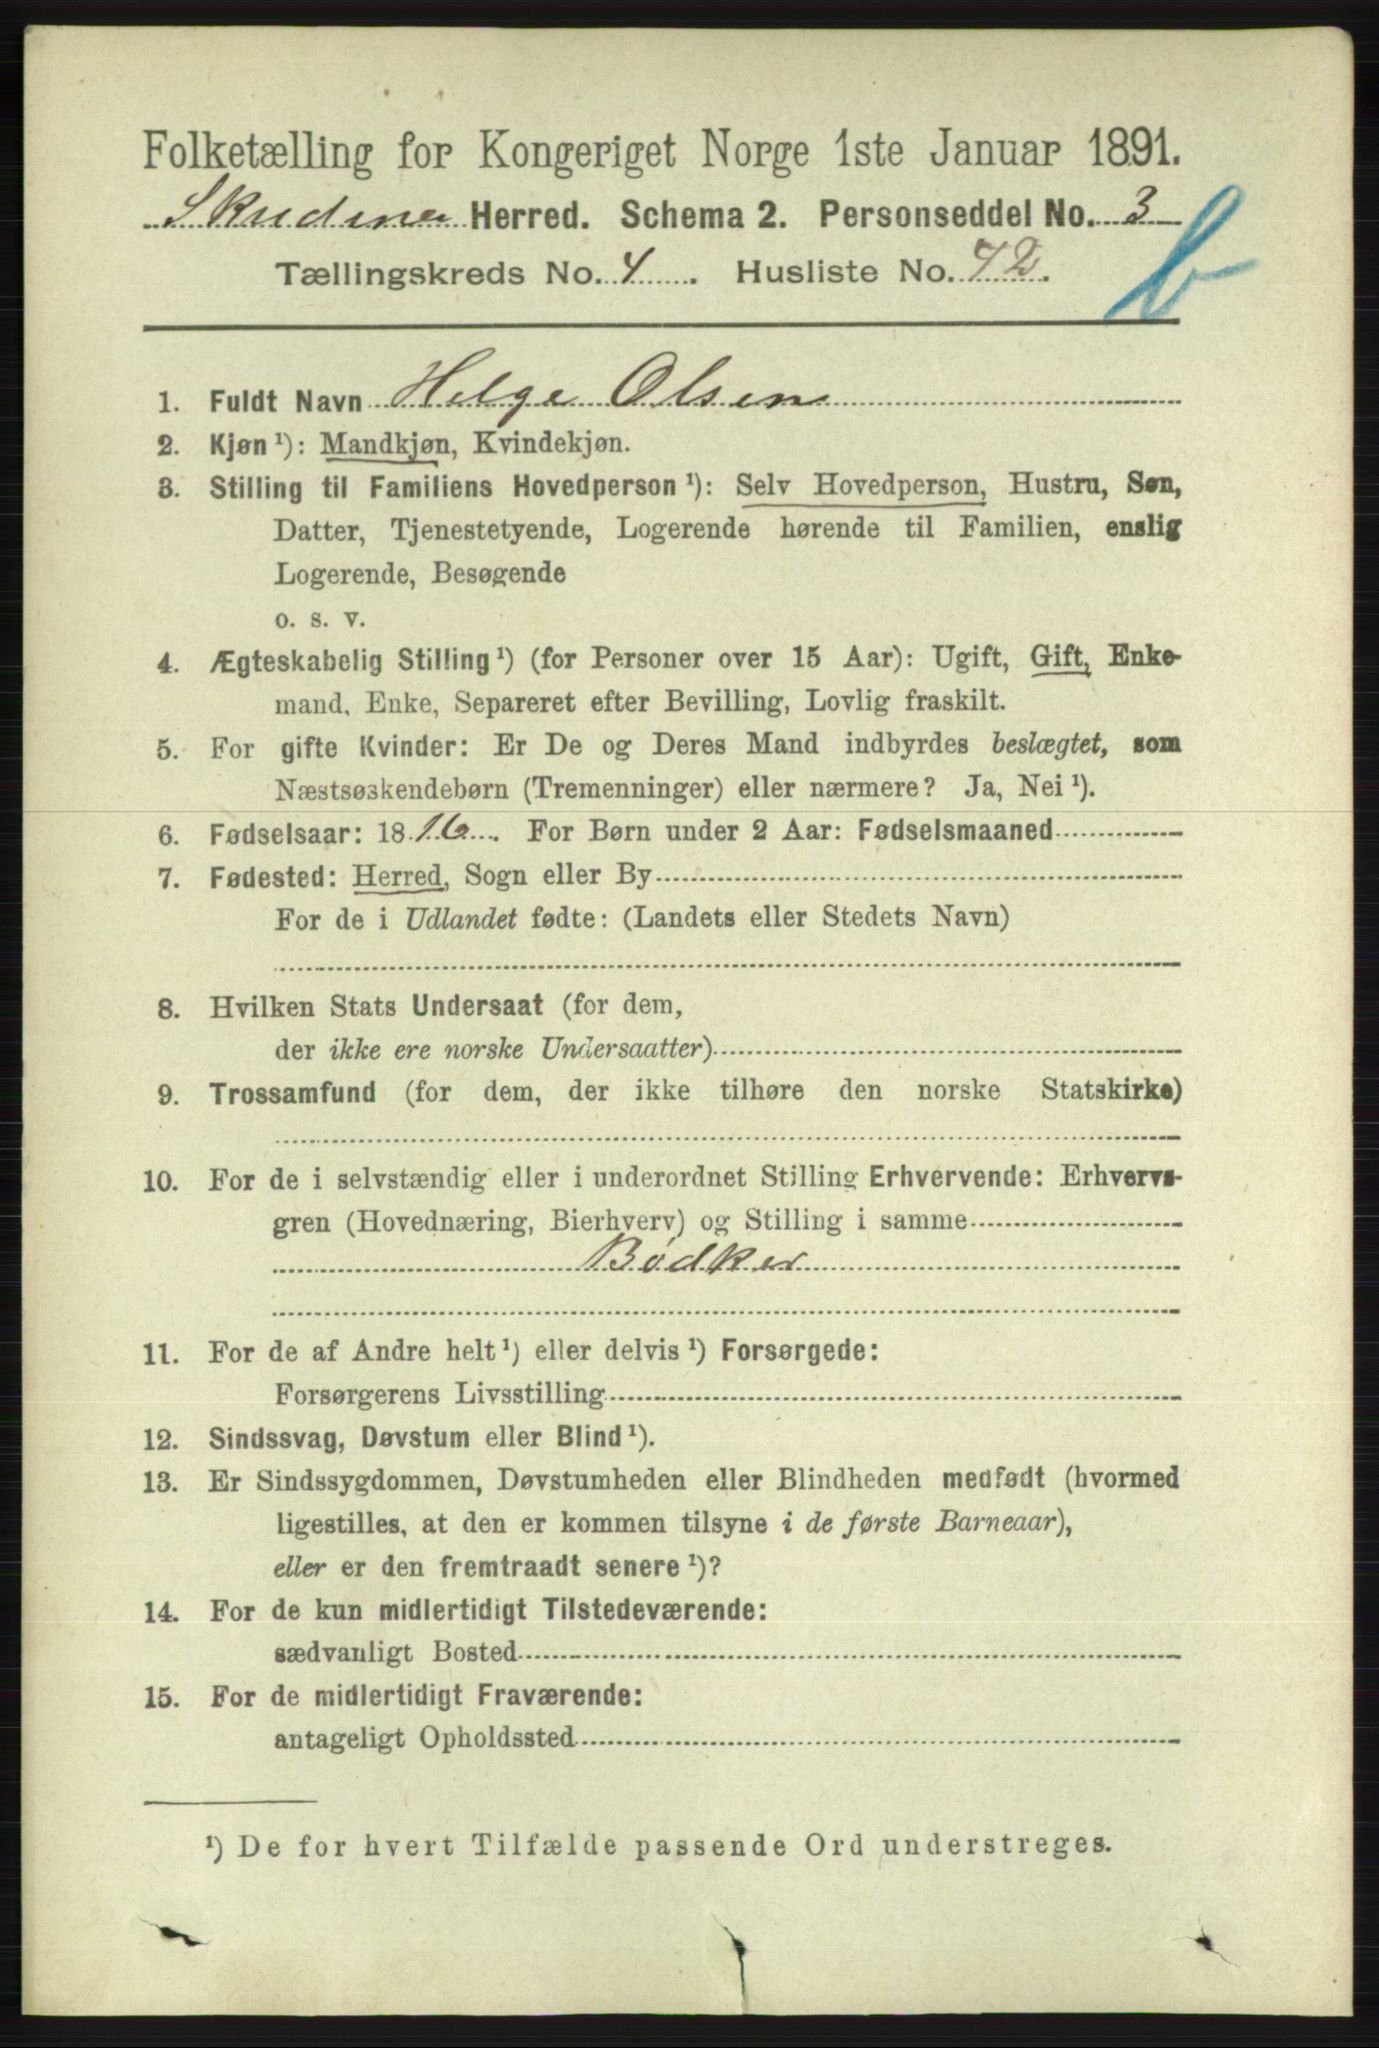 Folketælling for Kongeriget Norge 1ste Januar 1891.
Skudenes Herred. Schema 2. Personseddel No. 3
Tællingskreds No. 4. Husliste No. 42.
b
1. Fuldt Navn Helge Olsen
2. Kjøn ¹): Mandkjøn, Kvindekjøn.
3. Stilling til Familiens Hovedperson ¹): Selv Hovedperson, Hustru, Søn,
Datter, Tjenestetyende, Logerende hørende til Familien, enslig
Logerende, Besøgende
o. s. v.
4. Ægteskabelig Stilling ¹) (for Personer over 15 Aar): Ugift, Gift, Enke-
mand, Enke, Separeret efter Bevilling, Lovlig fraskilt.
5. For gifte Kvinder: Er De og Deres Mand indbyrdes beslægtet, som
Næstsøskendebørn (Tremenninger) eller nærmere? Ja, Nei ¹).
6. Fødselsaar: 1816. For Børn under 2 Aar: Fødselsmaaned
7. Fødested: Herred, Sogn eller By
For de i Udlandet fødte: (Landets eller Stedets Navn)
8. Hvilken Stats Undersaat (for dem,
der ikke ere norske Undersaatter)
9. Trossamfund (for dem, der ikke tilhøre den norske Statskirke)
10. For de i selvstændig eller i underordnet Stilling Erhvervende: Erhvervs-
gren (Hovednæring, Bierhverv) og Stilling i samme
Bødker
11. For de af Andre helt ¹) eller delvis ¹) Forsørgede:
Forsørgerens Livsstilling
12. Sindssvag, Døvstum eller Blind ¹).
13. Er Sindssygdommen, Døvstumheden eller Blindheden medfødt (hvormed
ligestilles, at den er kommen tilsyne i de første Barneaar),
eller er den fremtraadt senere ¹)?
14. For de kun midlertidigt Tilstedeværende:
sædvanligt Bosted
15. For de midlertidigt Fraværende:
antageligt Opholdssted
¹) De for hvert Tilfælde passende Ord understreges.